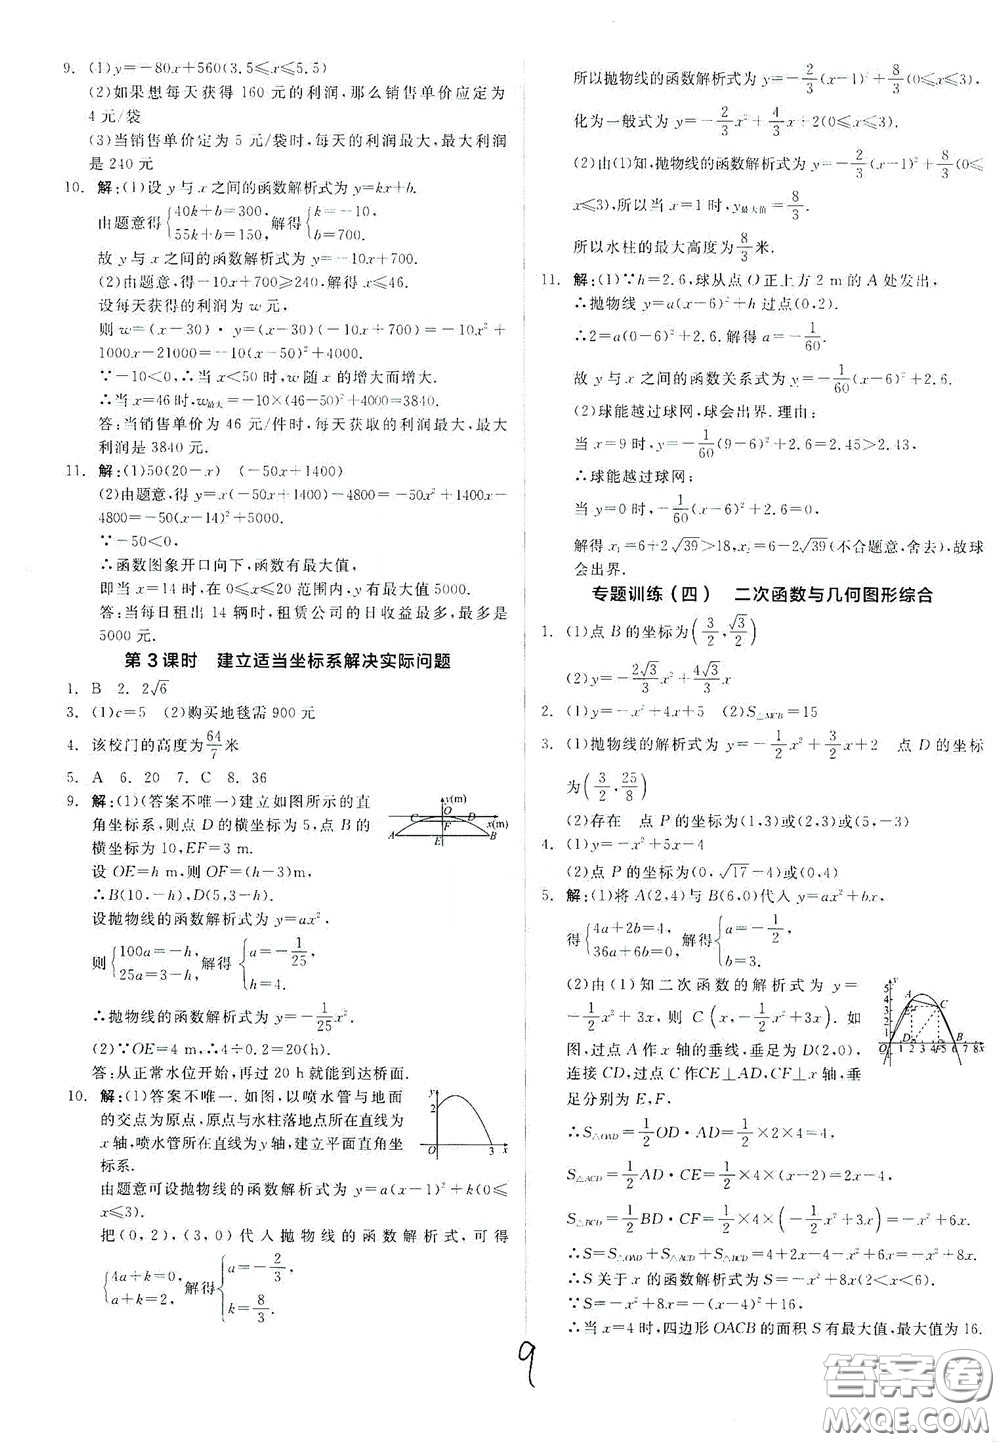 9. (1)y=-80x+560(3.5≤x≤5.5)
(2)如果想每天获得 160 元的利润,那么销售单价应定为
4 元/袋
(3)当销售单价定为 5 元/袋时,每天的利润最大,最大利润
是 240 元
10. 解:(1)设 y 与 x 之间的函数解析式为 y=kx+b.
由题意得{40k+b=300, 55k+b=150,解得{k=-10, b=700.
故 y 与 x 之间的函数解析式为 y=-10x+700.
(2)由题意,得-10x+700≥240,解得 x≤46.
设每天获得的利润为 w 元,
则 w=(x-30)·y=(x-30)(-10x+700)=-10x²+
1000x-21000=-10(x-50)²+4000.
∵-10<0,∴当 x<50 时,w 随 x 的增大而增大.
∴当 x=46 时,w最大=-10×(46-50)²+4000=3840.
答:当销售单价为 46 元/件时,每天获取的利润最大,最大
利润是 3840 元.
11. 解:(1)50(20-x) (-50x+1400)
(2)由题意,得 y=x(-50x+1400)-4800=-50x²+1400x-
4800=-50(x-14)²+5000.
∵-50<0,
∴函数图象开口向下,函数有最大值,
即当 x=14 时,在 0≤x≤20 范围内,y 有最大值 5000.
答:当每日租出 14 辆时,租赁公司的日收益最多,最多是
5000 元.
第 3 课时 建立适当坐标系解决实际问题
1. B 2. 2√6
3. (1)c=5 (2)购买地毯需 900 元
4. 该校门的高度为64/7米
5. A 6. 20 7. C 8. 36
9. 解:(1)(答案不唯一)建立如图所示的直
角坐标系,则点 D 的横坐标为 5,点 B 的
横坐标为 10,EF=3 m.
y(m)
O
C
D
F
x(m)
A
E
B
设 OE=h m,则 OF=(h-3)m.
∴B(10,-h),D(5,3-h).
设抛物线的函数解析式为 y=ax².
则{100a=-h, 25a=3-h,解得{a=-1/25, h=4.
∴抛物线的函数解析式为 y=-1/25x².
(2)∵OE=4 m,∴4÷0.2=20(h).
答:从正常水位开始,再过 20 h 就能到达桥面.
10. 解:(1)答案不唯一.如图,以喷水管与地面
的交点为原点,原点与水柱落地点所在直线为
x 轴,喷水管所在直线为 y 轴,建立平面直角坐
标系.
y
2
O
3
x
由题意可设抛物线的函数解析式为 y=a(x-1)²+k(0≤
x≤3).
把(0,2),(3,0)代入抛物线的函数解析式,可得
{4a+k=0, a+k=2,解得{a=-2/3, k=8/3.
所以抛物线的函数解析式为 y=-2/3(x-1)²+8/3(0≤x≤3).
化为一般式为 y=-2/3x²+4/3x+2(0≤x≤3).
(2)由(1)知,抛物线的函数解析式为 y=-2/3(x-1)²+8/3(0≤
x≤3),所以当 x=1 时,y最大值=8/3.
所以水柱的最大高度为8/3米.
11. 解:(1)∵h=2.6,球从点 O 正上方 2 m 的 A 处发出,
∴抛物线 y=a(x-6)²+h 过点(0,2).
∴2=a(0-6)²+2.6.解得 a=-1/60.
故 y 与 x 之间的函数关系式为 y=-1/60(x-6)²+2.6.
(2)球能越过球网,球会出界.理由:
当 x=9 时,y=-1/60(9-6)²+2.6=2.45>2.43,
∴球能越过球网;
当 y=0 时,-1/60(x-6)²+2.6=0,
解得 x₁=6+2√39>18,x₂=6-2√39(不合题意,舍去),故球
会出界.
专题训练(四) 二次函数与几何图形综合
1. (1)点 B 的坐标为(3/2,√3/2)
(2)y=-2√3/3x²+4√3/3x
2. (1)y=-x²+4x+5 (2)S△MCB=15
3. (1)抛物线的解析式为 y=-1/2x²+3/2x+2 点 D 的坐标
为(3/2,25/8)
(2)存在 点 P 的坐标为(1,3)或(2,3)或(5,-3)
4. (1)-x²+5x-4
(2)点 P 的坐标为(0,√17-4)或(0,4)
5. 解:(1)将 A(2,4)与 B(6,0)代入 y=ax²+bx,
得{4a+2b=4, 36a+6b=0,解得{a=-1/2, b=3.
(2)由(1)知二次函数的解析式为 y=
-1/2x²+3x,则 C(x,-1/2x²+3x).如
图,过点 A 作 x 轴的垂线,垂足为 D(2,0),
连接 CD,过点 C 作 CE⊥AD,CF⊥x 轴,垂
足分别为 E,F.
∴S△OAD=1/2OD·AD=1/2×2×4=4,
S△ACD=1/2AD·CE=1/2×4×(x-2)=2x-4,
S△BCD=1/2BD·CF=1/2×4×(-1/2x²+3x)=-x²+6x.
∴S=S△OAD+S△ACD+S△BCD=4+2x-4-x²+6x=-x²+8x.
∴S 关于 x 的函数解析式为 S=-x²+8x(2<x<6).
∵S=-x²+8x=-(x-4)²+16,
∴当 x=4 时,四边形 OACB 的面积 S 有最大值,最大值为 16.
9
答案圈
MXQE.COM